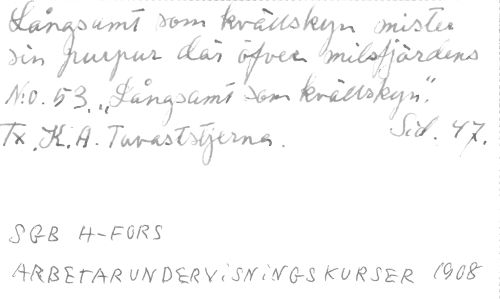 Långsamt som kvällskyn mister
sin purpur där öfver milsfjärdens
N:o. 53. „Långsamt som kvällskyn".
Tx. K. A. Tavaststjerna. Sid. 47.
SGB H-FORS
ARBETARUNDERVISNINGSKURSER 1908